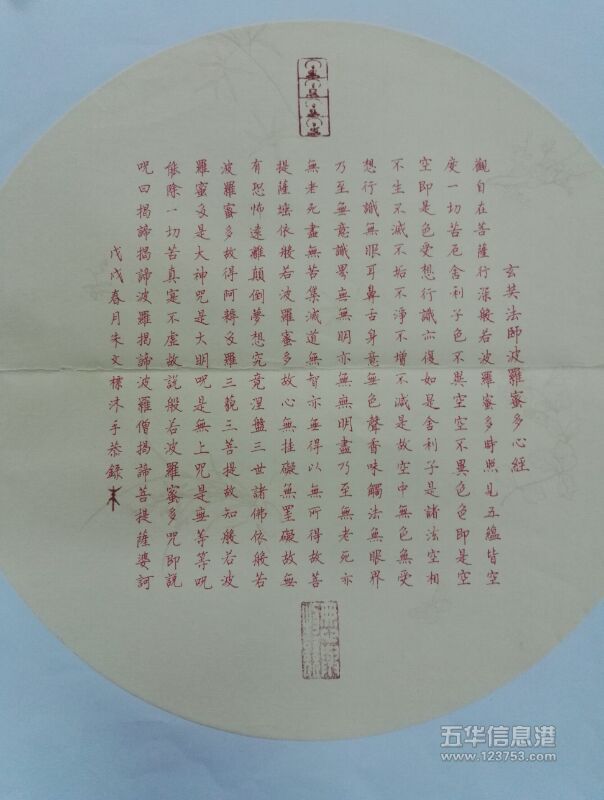 玄奘法師波羅蜜多心經
觀自在菩薩行深般若波羅蜜多時照見五蘊皆空
度一切苦厄舍利子色不異空空不異色色即是空
空即是色受想行識亦復如是舍利子是諸法空相
不生不滅不垢不淨不增不減是故空中無色無受
想行識無眼耳鼻舌身意無色聲香味觸法無眼界
乃至無意識界無無明亦無無明盡乃至無老死亦
無老死盡無苦集滅道無智亦無得以無所得故菩
提薩埵依般若波羅蜜多故心無挂礙無罣礙故無
有恐怖遠離顛倒夢想究竟涅盤三世諸佛依般若
波羅蜜多故得阿耨多羅三藐三菩提故知般若波
羅蜜多是大神咒是大明咒是無上咒是無等等咒
能除一切苦真寔不虛故說般若波羅蜜多咒即說
咒曰揭諦揭諦波羅揭諦波羅僧揭諦菩提薩婆訶
戊戌春月朱文標沐手恭録
五华信息港
www.123753.com